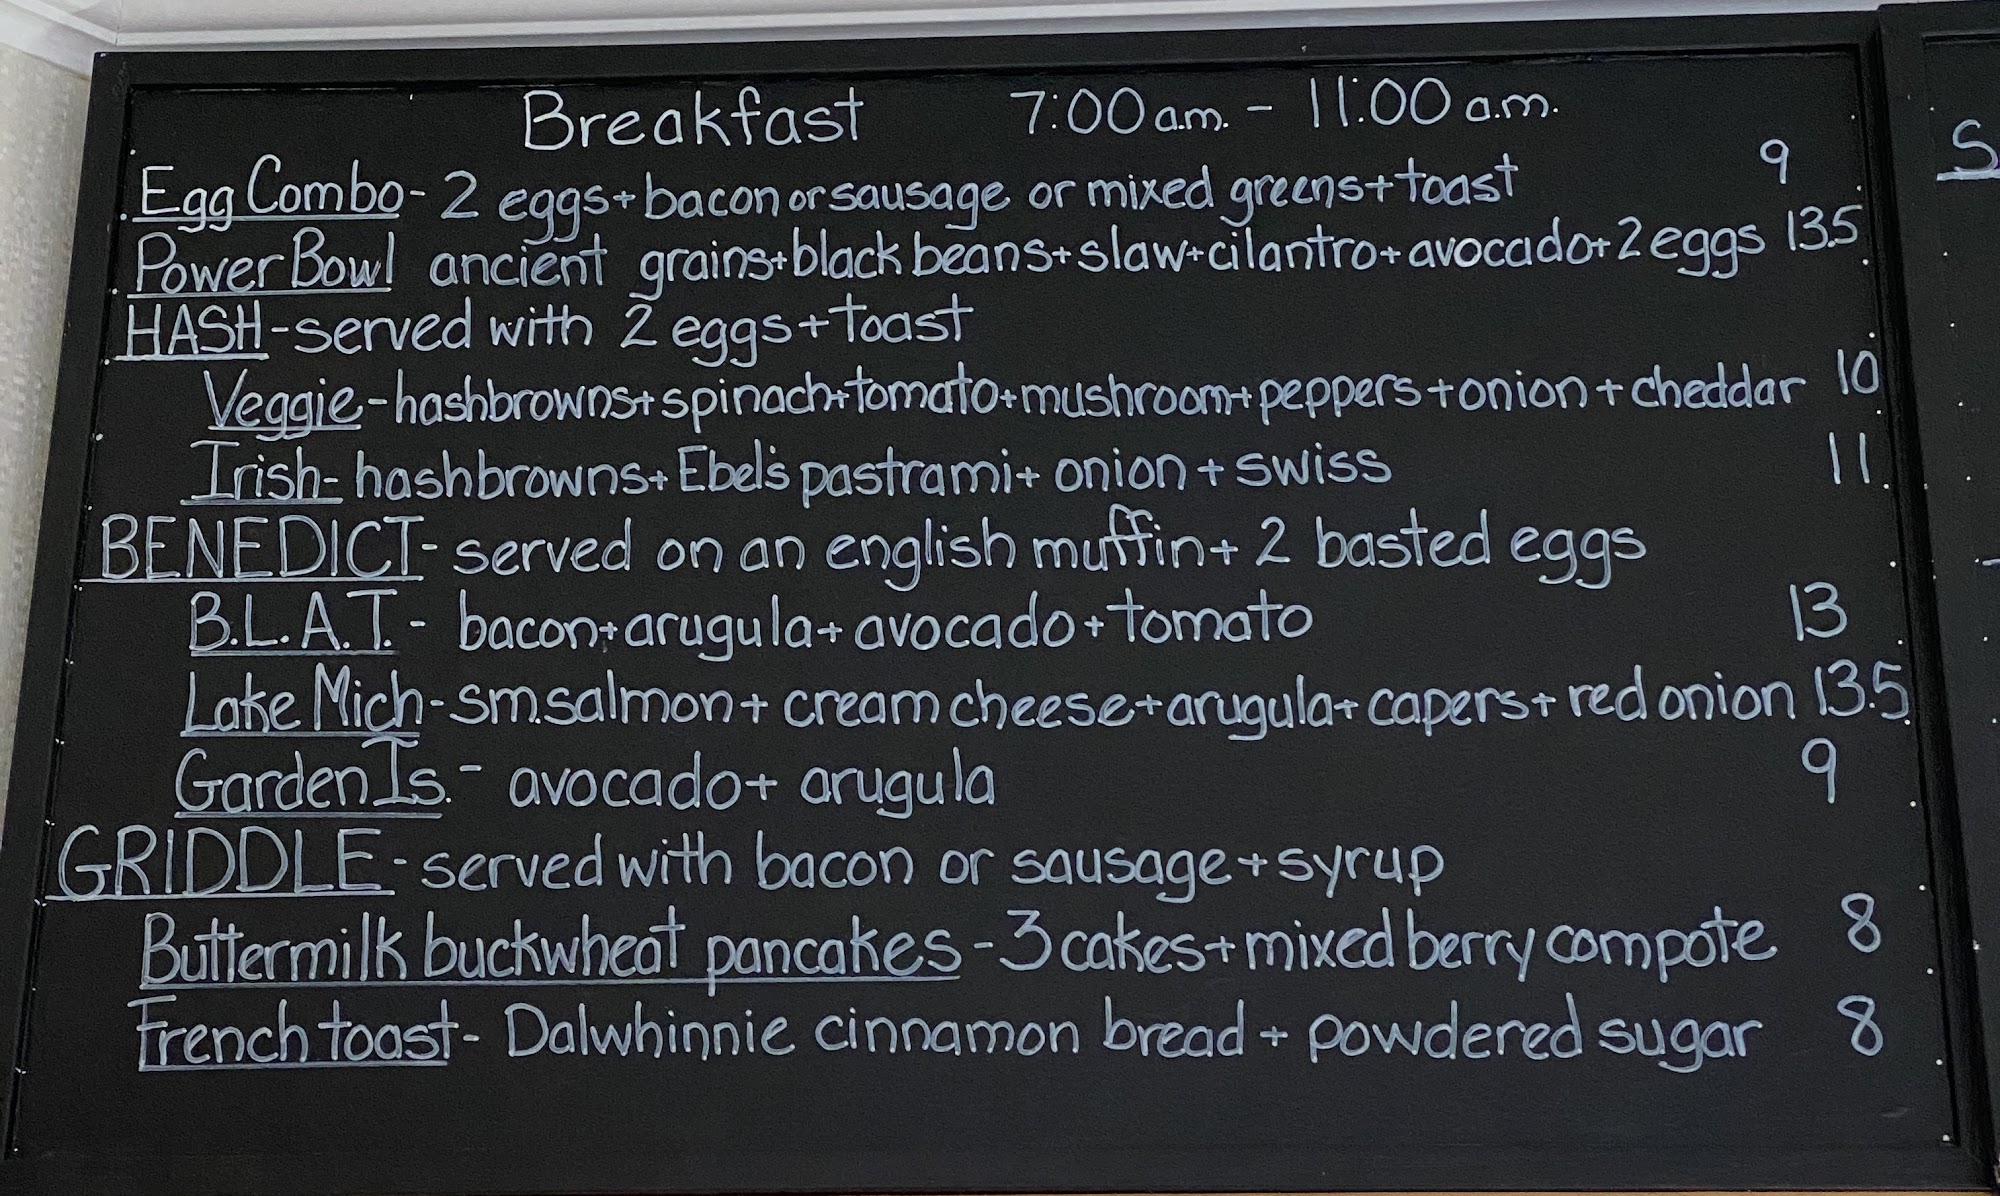 Breakfast 7:00 a.m. - 11:00 a.m.
Egg Combo - 2 eggs + bacon or sausage or mixed greens + toast 9
Power Bowl ancient grains + black beans + slaw + cilantro + avocado + 2 eggs 13.5
HASH - served with 2 eggs + toast
Veggie - hashbrowns + spinach + tomato + mushroom + peppers + onion + cheddar 10
Irish - hashbrowns + Ebel's pastrami + onion + swiss 11
BENEDICT - served on an english muffin + 2 basted eggs
B.L.A.T. - bacon + arugula + avocado + tomato 13
Lake Mich - sm. salmon + cream cheese + arugula + capers + red onion 13.5
Garden Is. - avocado + arugula 9
GRIDDLE - served with bacon or sausage + syrup
Buttermilk buckwheat pancakes - 3 cakes + mixed berry compote 8
French toast - Dalwhinnie cinnamon bread + powdered sugar 8